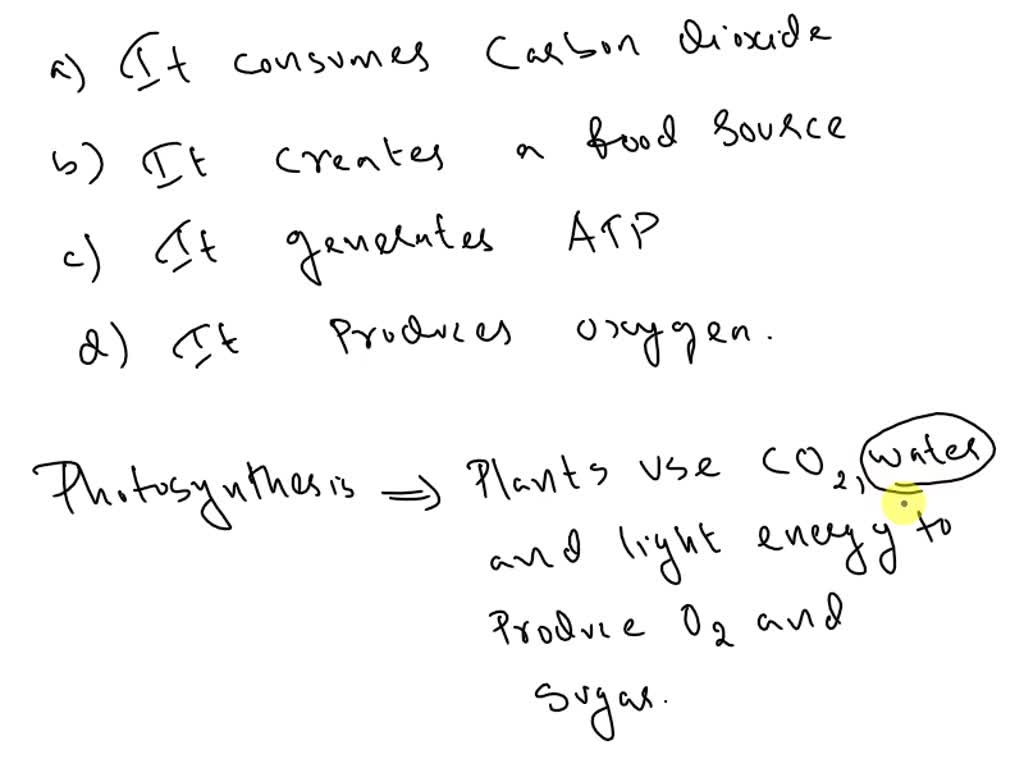 a) It consumes Carbon dioxide
b) It creates a food source
c) It generates ATP
d) It Produces oxygen.
Photosynthesis ⇒ Plants use CO2, water
and light energy to
Produce O2 and
Sugar.